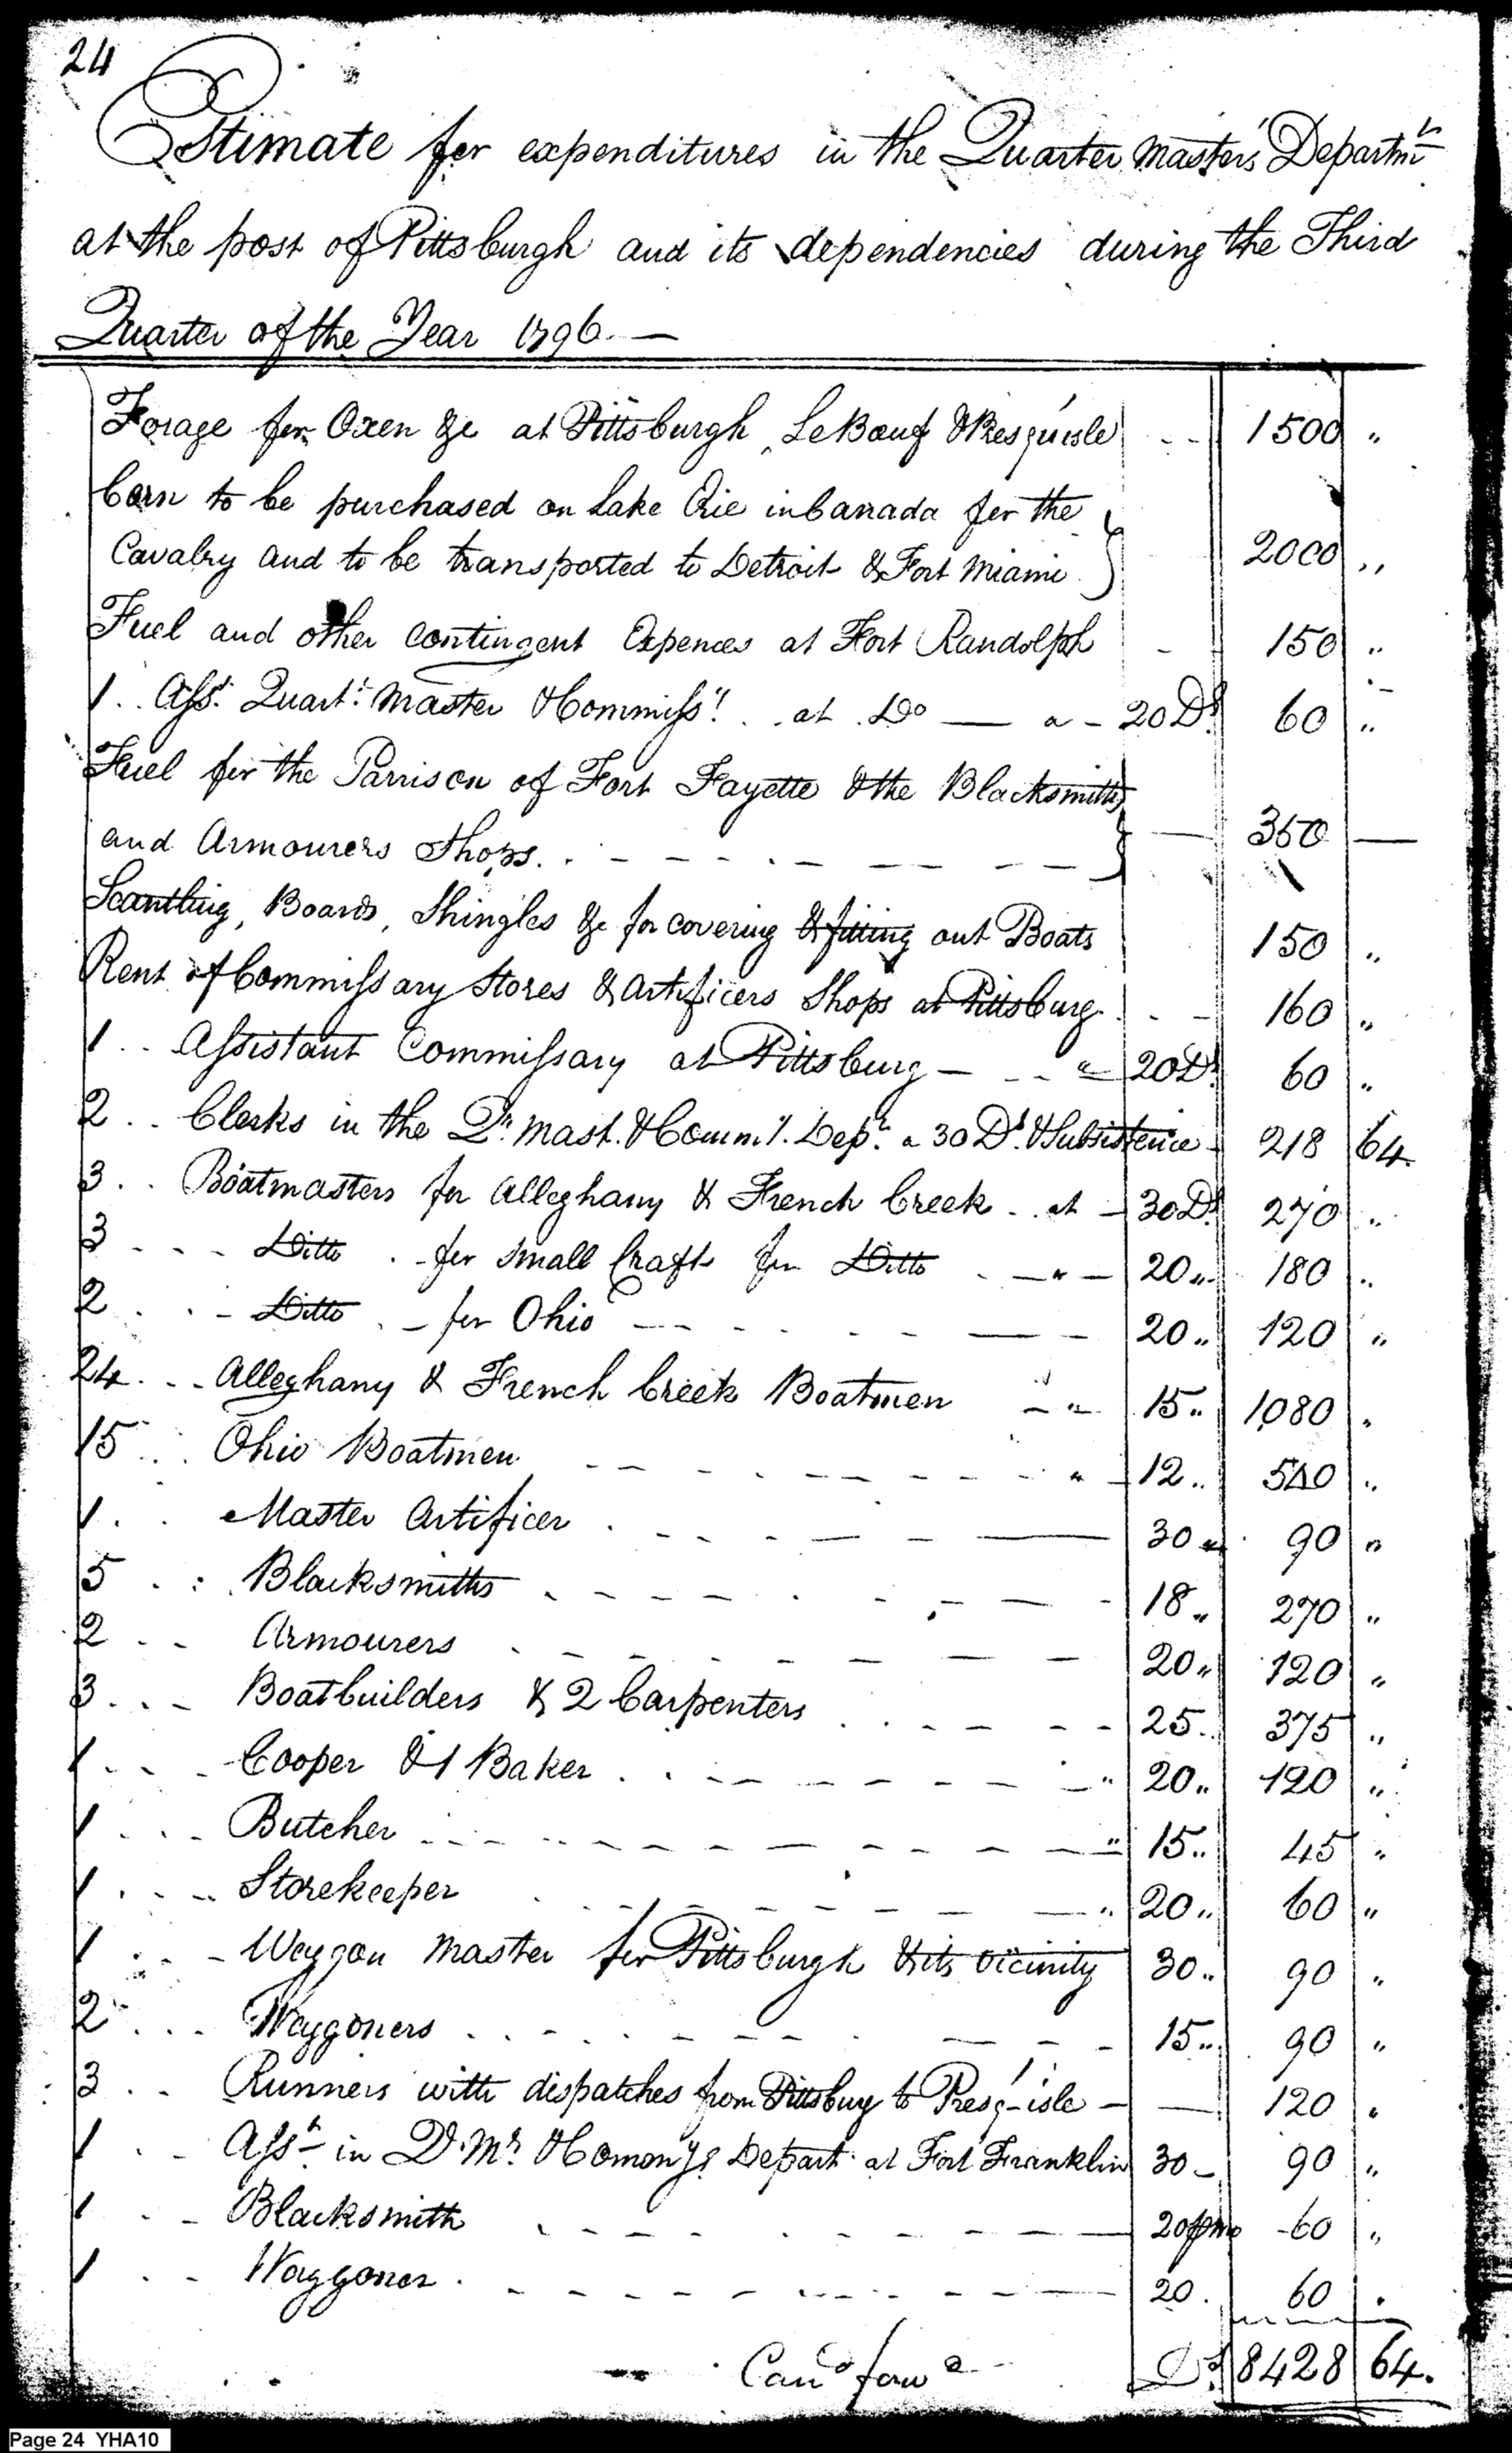 24
Estimate for expenditures in the Quarter Masters Departmt
at the post of Pittsburgh and its dependencies during the Third
Quarter of the Year 1796.—
Forage for Oxen &c at Pittsburgh, LeBœuf & Presqu'isle - - 1500 "
Corn to be purchased on Lake Erie in Canada for the
Cavalry and to be transported to Detroit & Fort Miami } 2000 "
Fuel and other contingent Expences at Fort Randolph - - 150 "
1 . . Asst. Quartr. Master & Commissy. . . at . Do — a - 20 Ds. 60 "
Fuel for the Garrison of Fort Fayette & the Blacksmiths
and Armourers Shops. - - - - - - - } — 350 —
Scantling, Boards, Shingles &c for covering & fitting out Boats 150 "
Rent of Commissary Stores & Artificers Shops at Pittsburg. - - 160 "
1 . . Assistant Commissary at Pittsburg — - - " 20 Ds. 60 "
2 . . Clerks in the Qr. Mast. & Comm'y. Dept. a 30 Ds. & Subsistence - 218 64.
3 . . Boatmasters for Alleghany & French Creek - at - 30 Ds. 270 "
3 - - - Ditto . - for small Craft for Ditto - — " — 20 " 180 "
2 . . - Ditto . - for Ohio - - - - - — - 20 " 120 "
24 . - - Alleghany & French Creek Boatmen - " 15 " 1080 "
15 . . . Ohio Boatmen - - - - - - - - " - 12 " 540 "
1 . . Master Artificer . - - - — - — 30 " 90 "
5 . . . Blacksmiths . - - - - - - — - 18 " 270 "
2 . . - Armourers - - - - - - - — 20 " 120 "
3 . . - Boatbuilders & 2 Carpenters . . - - - - - 25 " 375 "
1 . . - Cooper & 1 Baker . . - - - - - - - " 20 " 120 "
1 . . - Butcher - - - - - - - - - - - " 15 " 45 "
1 . - - Storekeeper - - - - - - - - " 20 " 60 "
1 . . - Waggon Master for Pittsburgh & its vicinity 30 " 90 "
2 . . . Waggoners . . - - - - - - — - - 15 " 90 "
3 . . Runners with dispatches from Pittsburg to Presq'-isle - — 120 "
1 . - Asst. in Q. Mr. & Comony's Depart. at Fort Franklin 30 - 90 "
1 . - - Blacksmith - - - - - - - - — 20 pmo 60 "
1 . - - Waggoner . - - - - - - - - - — 20 . 60 .
Carrd. forwd. Ds. 8428 64.
Page 24 YHA10